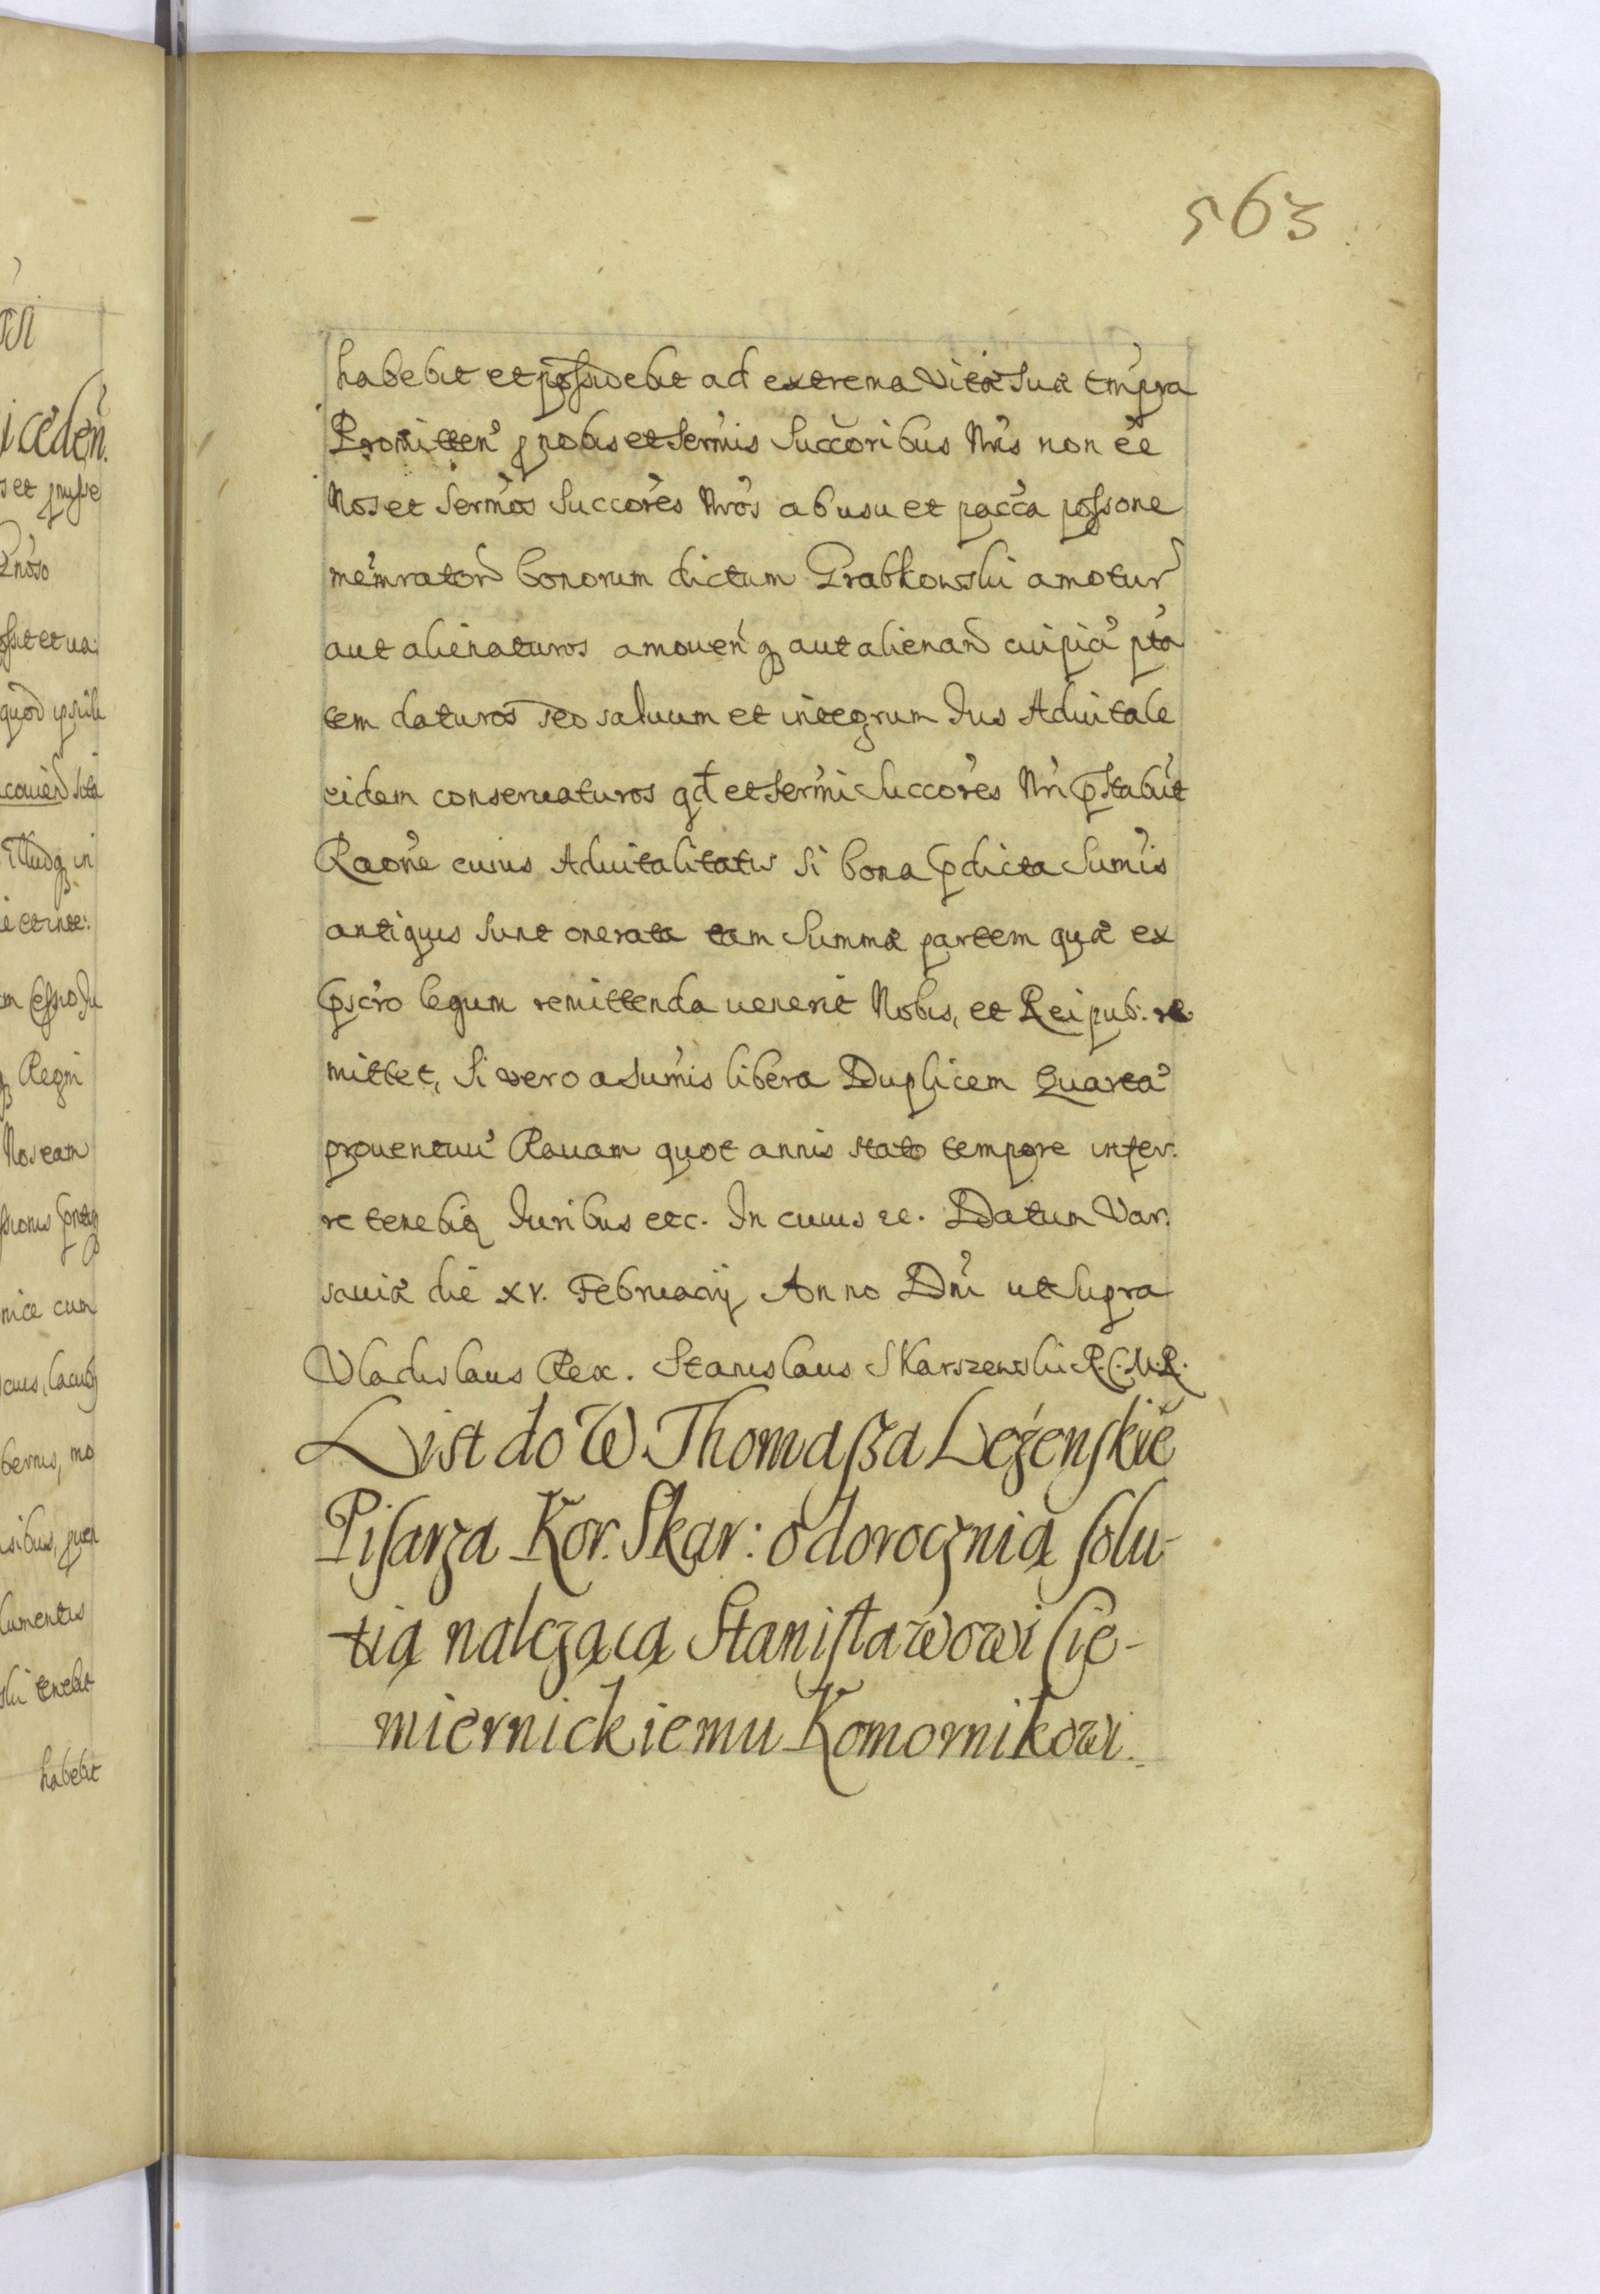 563
habebit et possidebit ad extrema Vitæ suæ temp̃ra
Promitten̓ ꝓ nobis et Ser̃mis Succ̃oribus Nr̃is non ẽe
Nos et Ser̃mos Succor̃es Nr̃os ab usu et pacc̃a possone
mem̃rator̃ bonorum dictum Grabkowski amotur̃
aut alienaturos amouen̓ꝗ aut alienan̓ cuipia̓ pt̃a
tem daturos sed saluum et integrum Ius Aduitale
eidem conseruaturos qd̃ et Ser̃mi Succor̃es Nr̃i p̃stabũt
Raoñe cuius Aduitalitatis si bona p̃dicta Sum̃is
antiquis sunt onerata eam Summæ partem quæ ex
p̃scr̃o legum remittenda uenerit Nobis, et Reipub: re
mittet, Si vero a sum̃is libera Duplicem Quarta̓
prouentuu̓ Rauam quot annis stato tempore infer.
re tenebiꝗ Iuribus etc. In cuius ec. Datum Var.
sauiæ die XV. Februarij Anno Dñi ut supra
Vladislaus Rex. Stanislaus Skarszewski R.C.M.R.
List do W Thomaßa Leżenskie
Pisarza Kor. Skar: o dorocznią solu-
tią nalezącą Stanisławowi Sie-
miernickiemu Komornikowi.
habebit